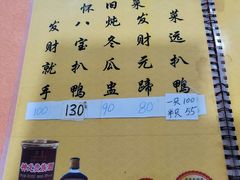 菜远扒鸭
菜发财元蹄
旧炖冬瓜盅
怀八宝扒鸭
发财就手
100
130
90
80
一只100
半只55